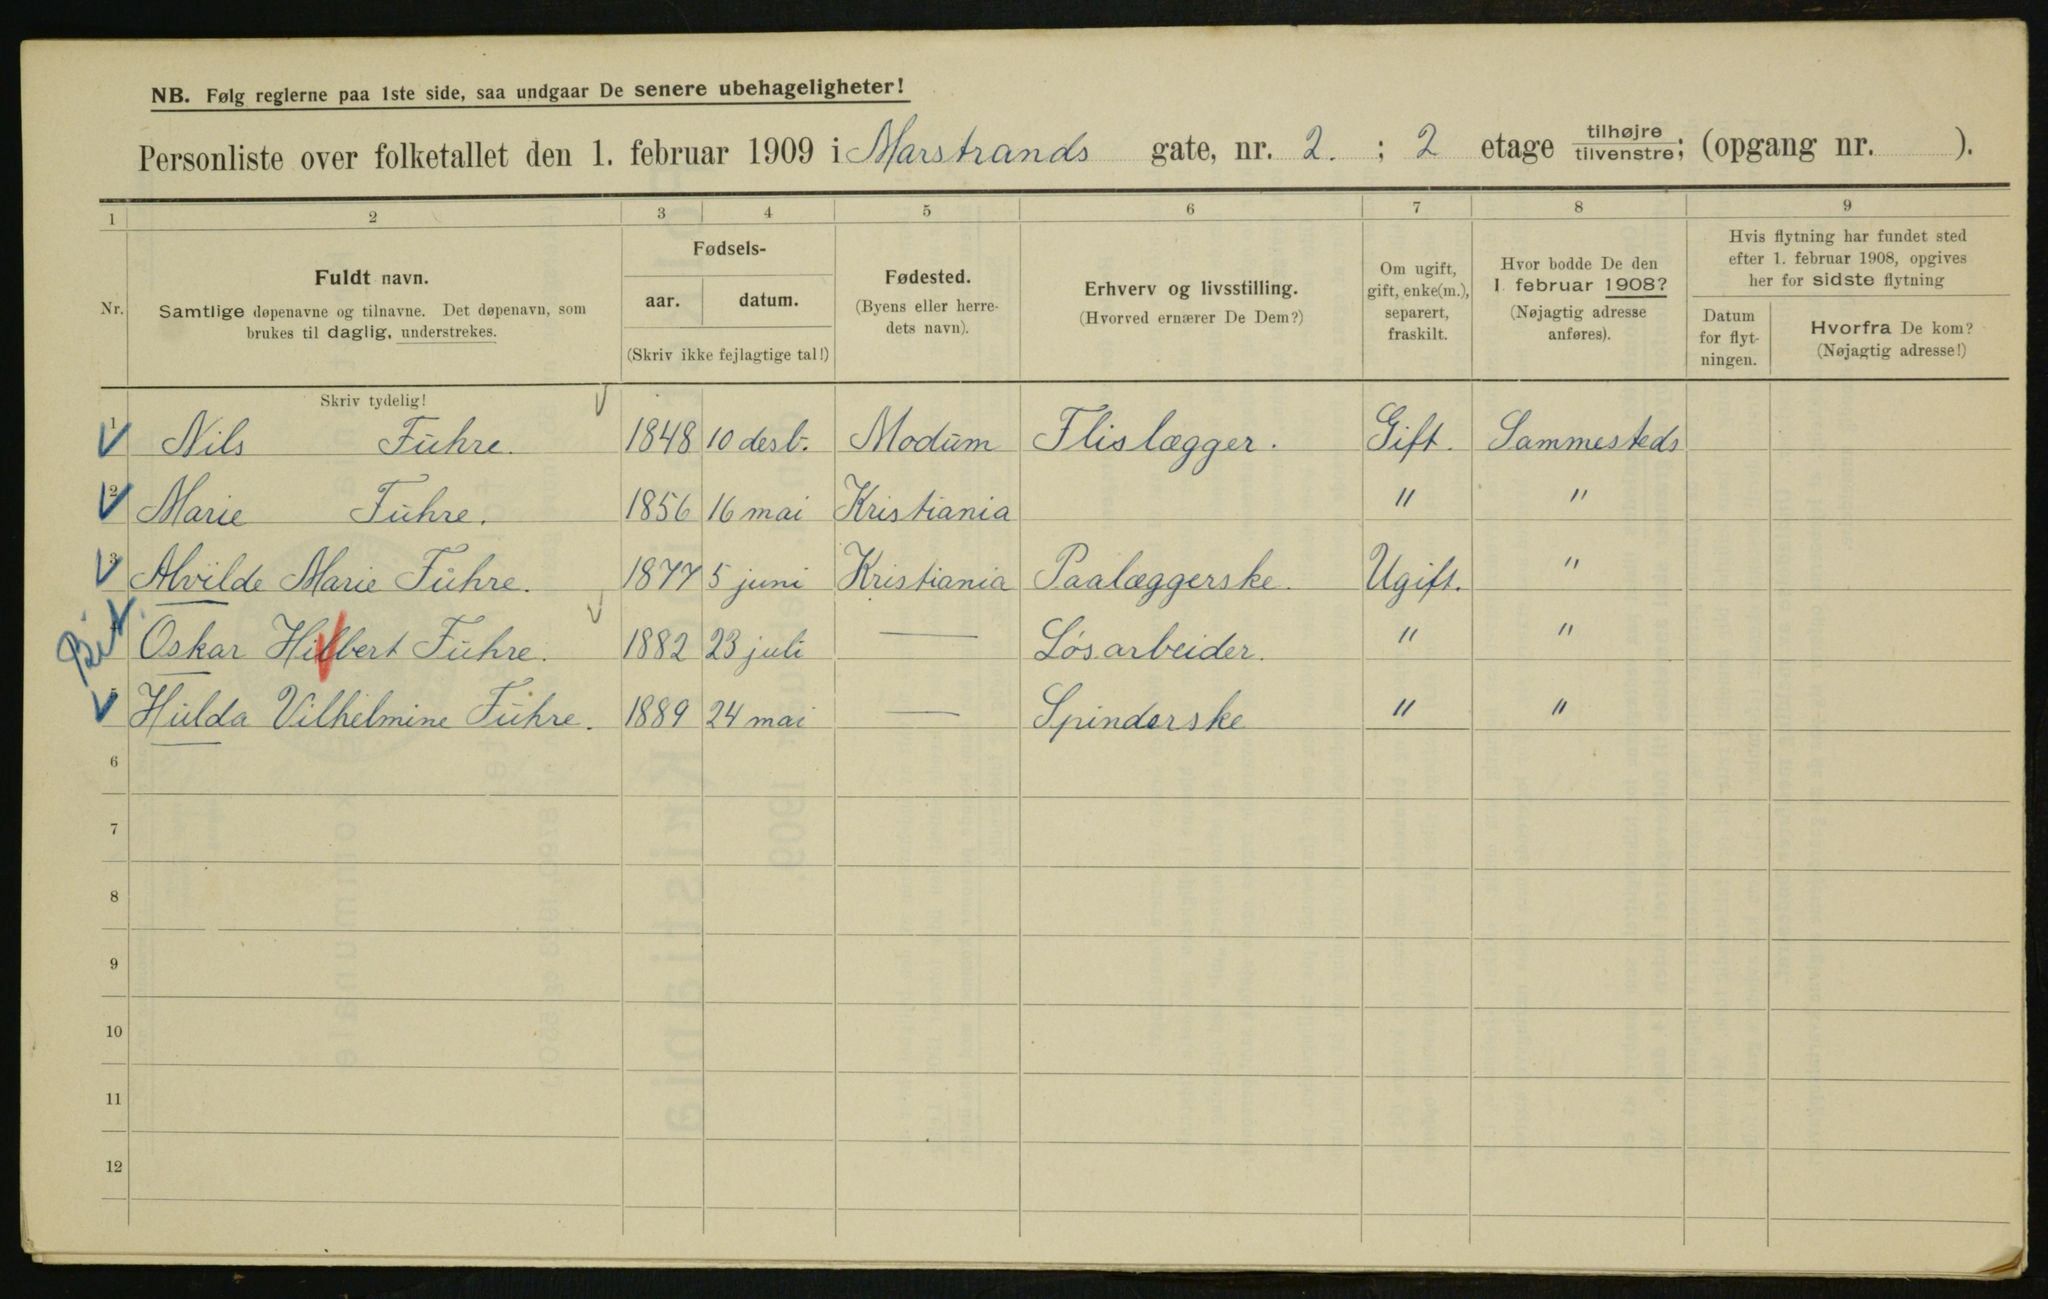 NB. Følg reglerne paa 1ste side, saa undgaar De senere ubehageligheter!
Personliste over folketallet den 1. februar 1909 i Marstrands gate, nr. 2. ; 2 etage tilhøjre tilvenstre; (opgang nr. ).
1 2 3 4 5 6 7 8 9
Nr.
Fuldt navn.
Samtlige døpenavne og tilnavne. Det døpenavn, som
brukes til daglig, understrekes.
Fødsels-
aar. datum.
(Skriv ikke fejlagtige tal!)
Fødested.
(Byens eller herre-
dets navn).
Erhverv og livsstilling.
(Hvorved ernærer De Dem?)
Om ugift,
gift, enke(m.),
separert,
fraskilt.
Hvor bodde De den
1. februar 1908?
(Nøjagtig adresse
anføres).
Hvis flytning har fundet sted
efter 1. februar 1908, opgives
her for sidste flytning
Datum
for flyt-
ningen.
Hvorfra De kom?
(Nøjagtig adresse!)
Skriv tydelig!
1 Nils Fuhre. 1848 10 desb. Modum Flislægger. Gift. Sammesteds
2 Marie Fuhre. 1856 16 mai Kristiania " "
3 Alvilde Marie Fuhre. 1877 5 juni Kristiania Paalæggerske. Ugift. "
Oskar Hilbert Fuhre. 1882 23 juli — Løsarbeider. " "
5 Hulda Vilhelmine Fuhre. 1889 24 mai — Spinderske " "
6
7
8
9
10
11
12